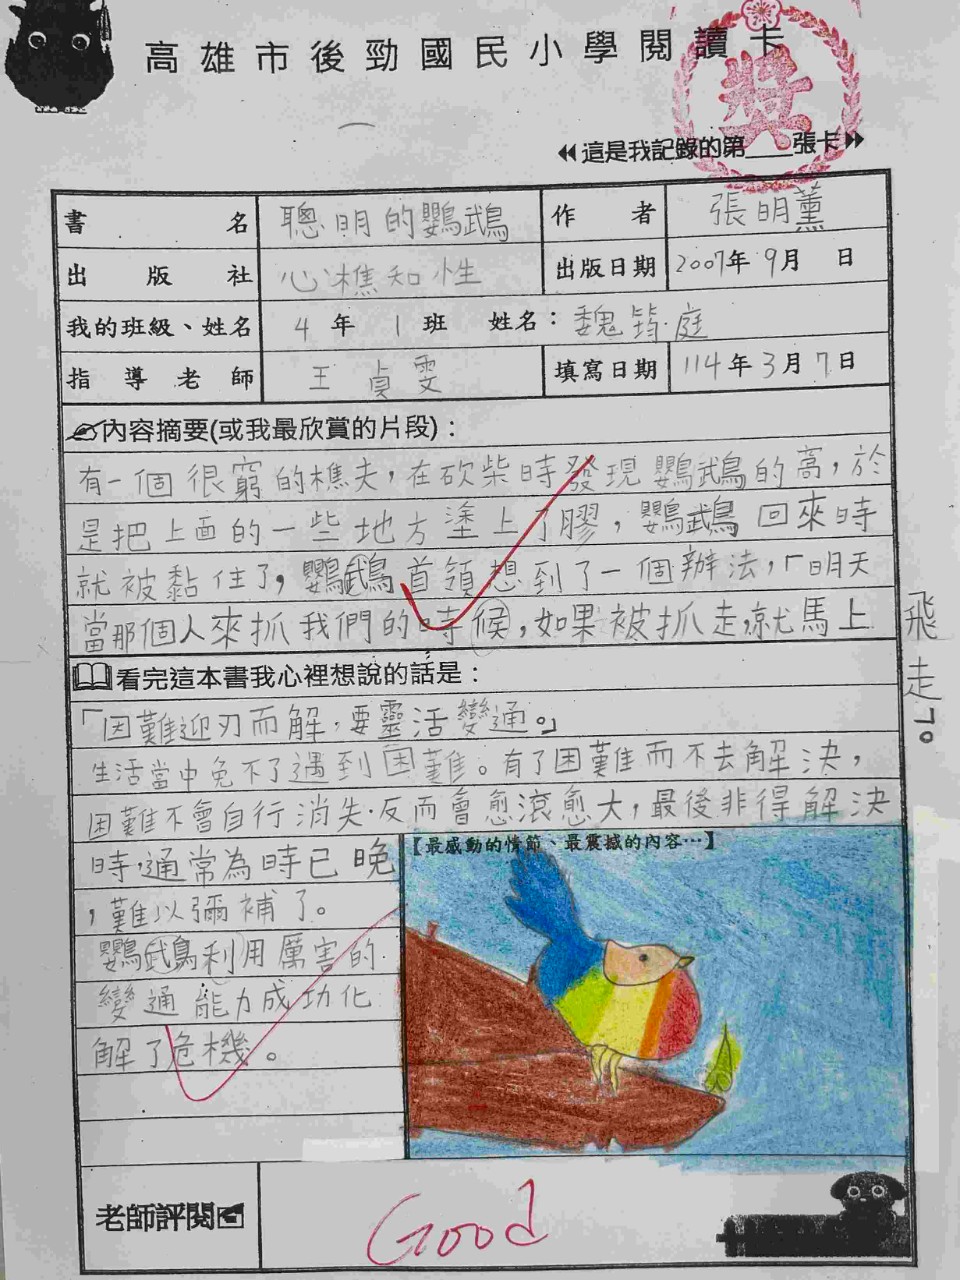 高雄市後勁國民小學閱讀卡
獎
這是我記錄的第____張卡
書名 聰明的鸚鵡 作者 張明薰
出版社 心樵知性 出版日期 2007年9月 日
我的班級、姓名 4年1班 姓名：魏筠庭
指導老師 王貞雯 填寫日期 114年3月7日
內容摘要(或我最欣賞的片段)：
有一個很窮的樵夫，在砍柴時發現鸚鵡的窩，於
是把上面的一些地方塗上了膠，鸚鵡回來時
就被黏住了，鸚鵡首領想到了一個辦法，「明天
當那個人來抓我們的時候，如果被抓走，就馬上
飛走」。
看完這本書我心裡想說的話是：
「困難迎刃而解，要靈活變通。」
生活當中免不了遇到困難。有了困難而不去解決，
困難不會自行消失，反而會愈滾愈大，最後非得解決
時，通常為時已晚
，難以彌補了。
鸚鵡利用厲害的
變通能力成功化
解了危機。
【最感動的情節、最震撼的內容…】
老師評閱
Good